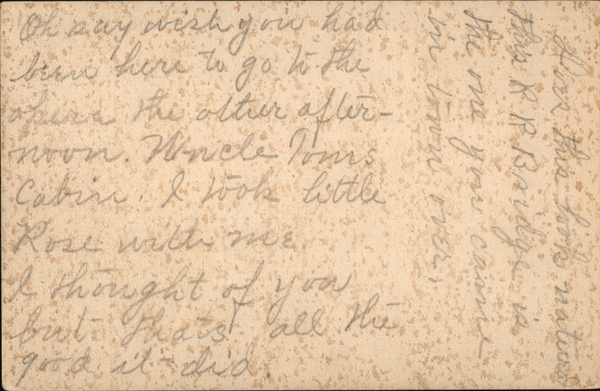 Oh say wish you had
been here to go to the
opera the other after-
noon. Uncle Toms
Cabin. I took little
Rose with me.
I thought of you
but thats all the
good it did
Does this look natural
this R R Bridge is
the one you came
in town over.